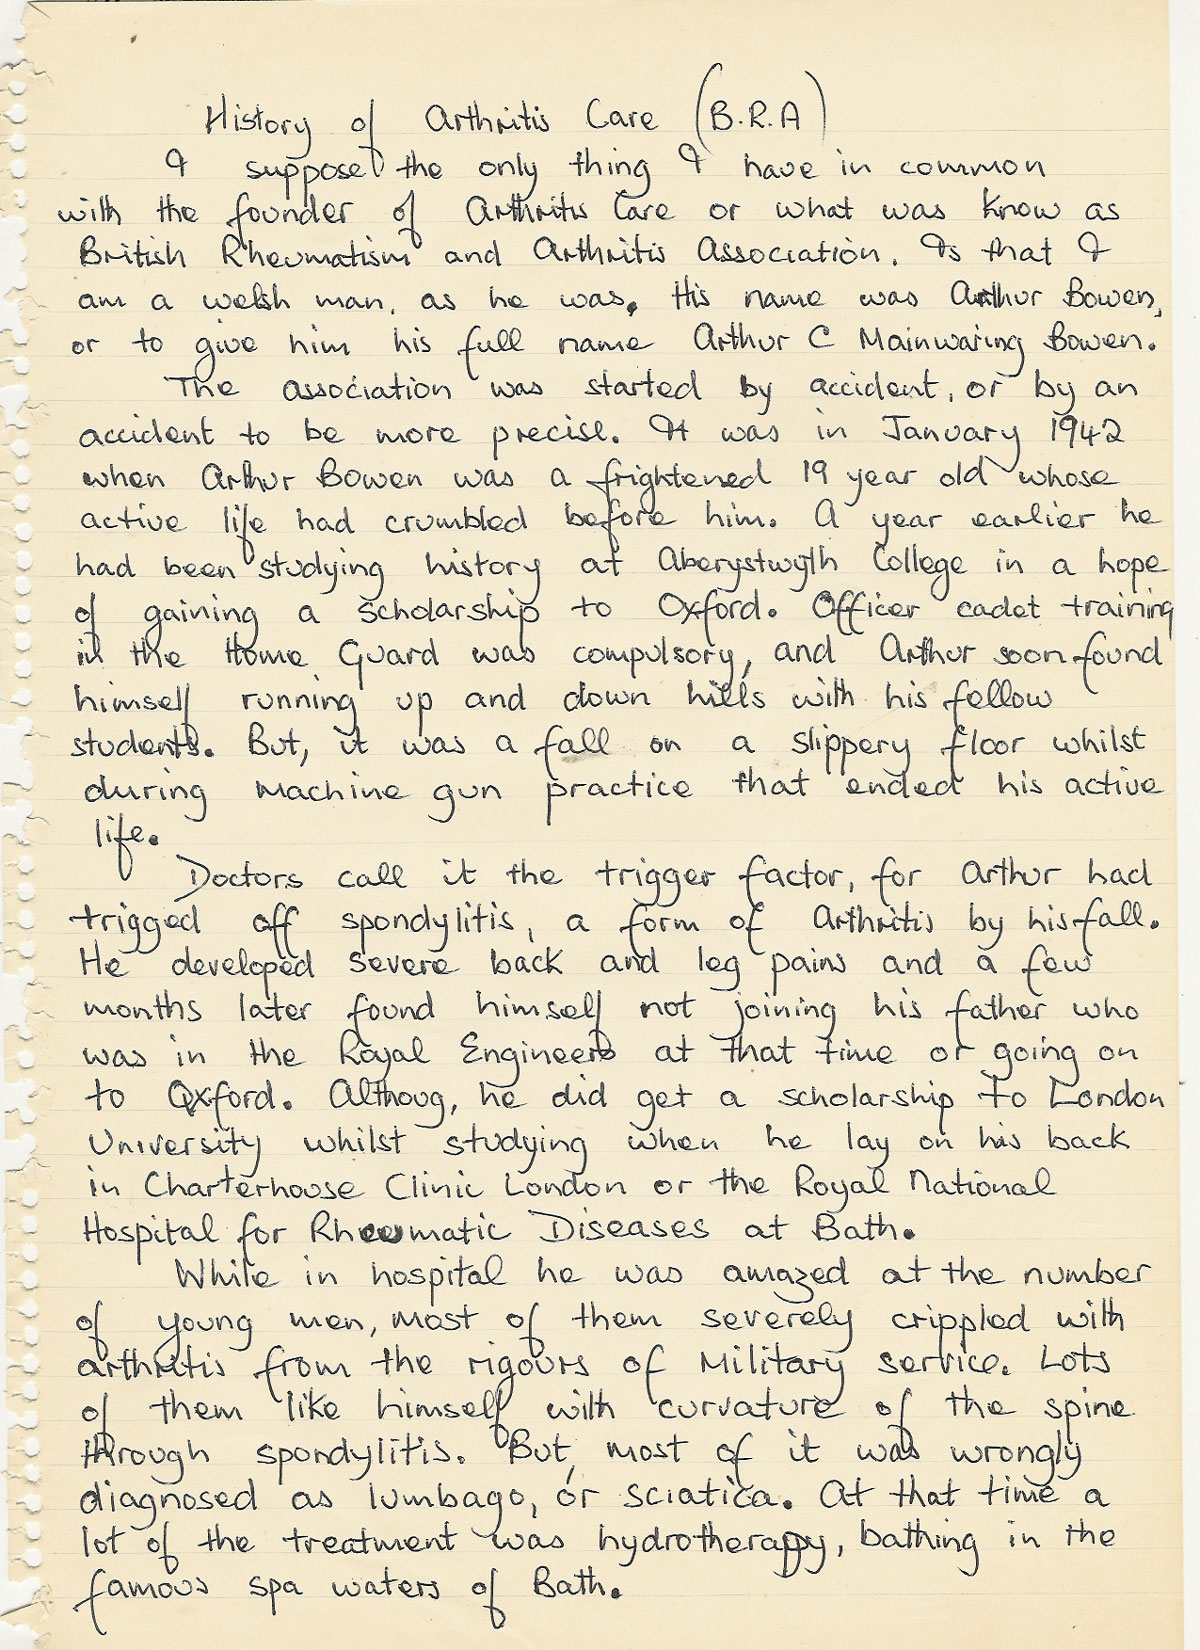 History of Arthritis Care (B.R.A)
I suppose the only thing I have in common
with the founder of Arthritis Care or what was know as
British Rheumatism and Arthritis Association. Is that I
am a welsh man, as he was. His name was Arthur Bowen,
or to give him his full name Arthur C Mainwaring Bowen.
The association was started by accident, or by an
accident to be more precise. It was in January 1942
when Arthur Bowen was a frightened 19 year old whose
active life had crumbled before him. A year earlier he
had been studying history at Aberystwyth College in a hope
of gaining a scholarship to Oxford. Officer cadet training
in the Home Guard was compulsory, and Arthur soon found
himself running up and down hills with his fellow
students. But, it was a fall on a slippery floor whilst
during machine gun practice that ended his active
life.
Doctors call it the trigger factor, for Arthur had
trigged off spondylitis, a form of Arthritis by his fall.
He developed severe back and leg pains and a few
months later found himself not joining his father who
was in the Royal Engineers at that time or going on
to Oxford. Althoug, he did get a scholarship to London
University whilst studying when he lay on his back
in Charterhouse Clinic London or the Royal National
Hospital for Rheumatic Diseases at Bath.
While in hospital he was amazed at the number
of young men, most of them severely crippled with
arthritis from the rigours of Military service. Lots
of them like himself with curvature of the spine
through spondylitis. But, most of it was wrongly
diagnosed as lumbago, or sciatica. At that time a
lot of the treatment was hydrotherapy, bathing in the
famous spa waters of Bath.